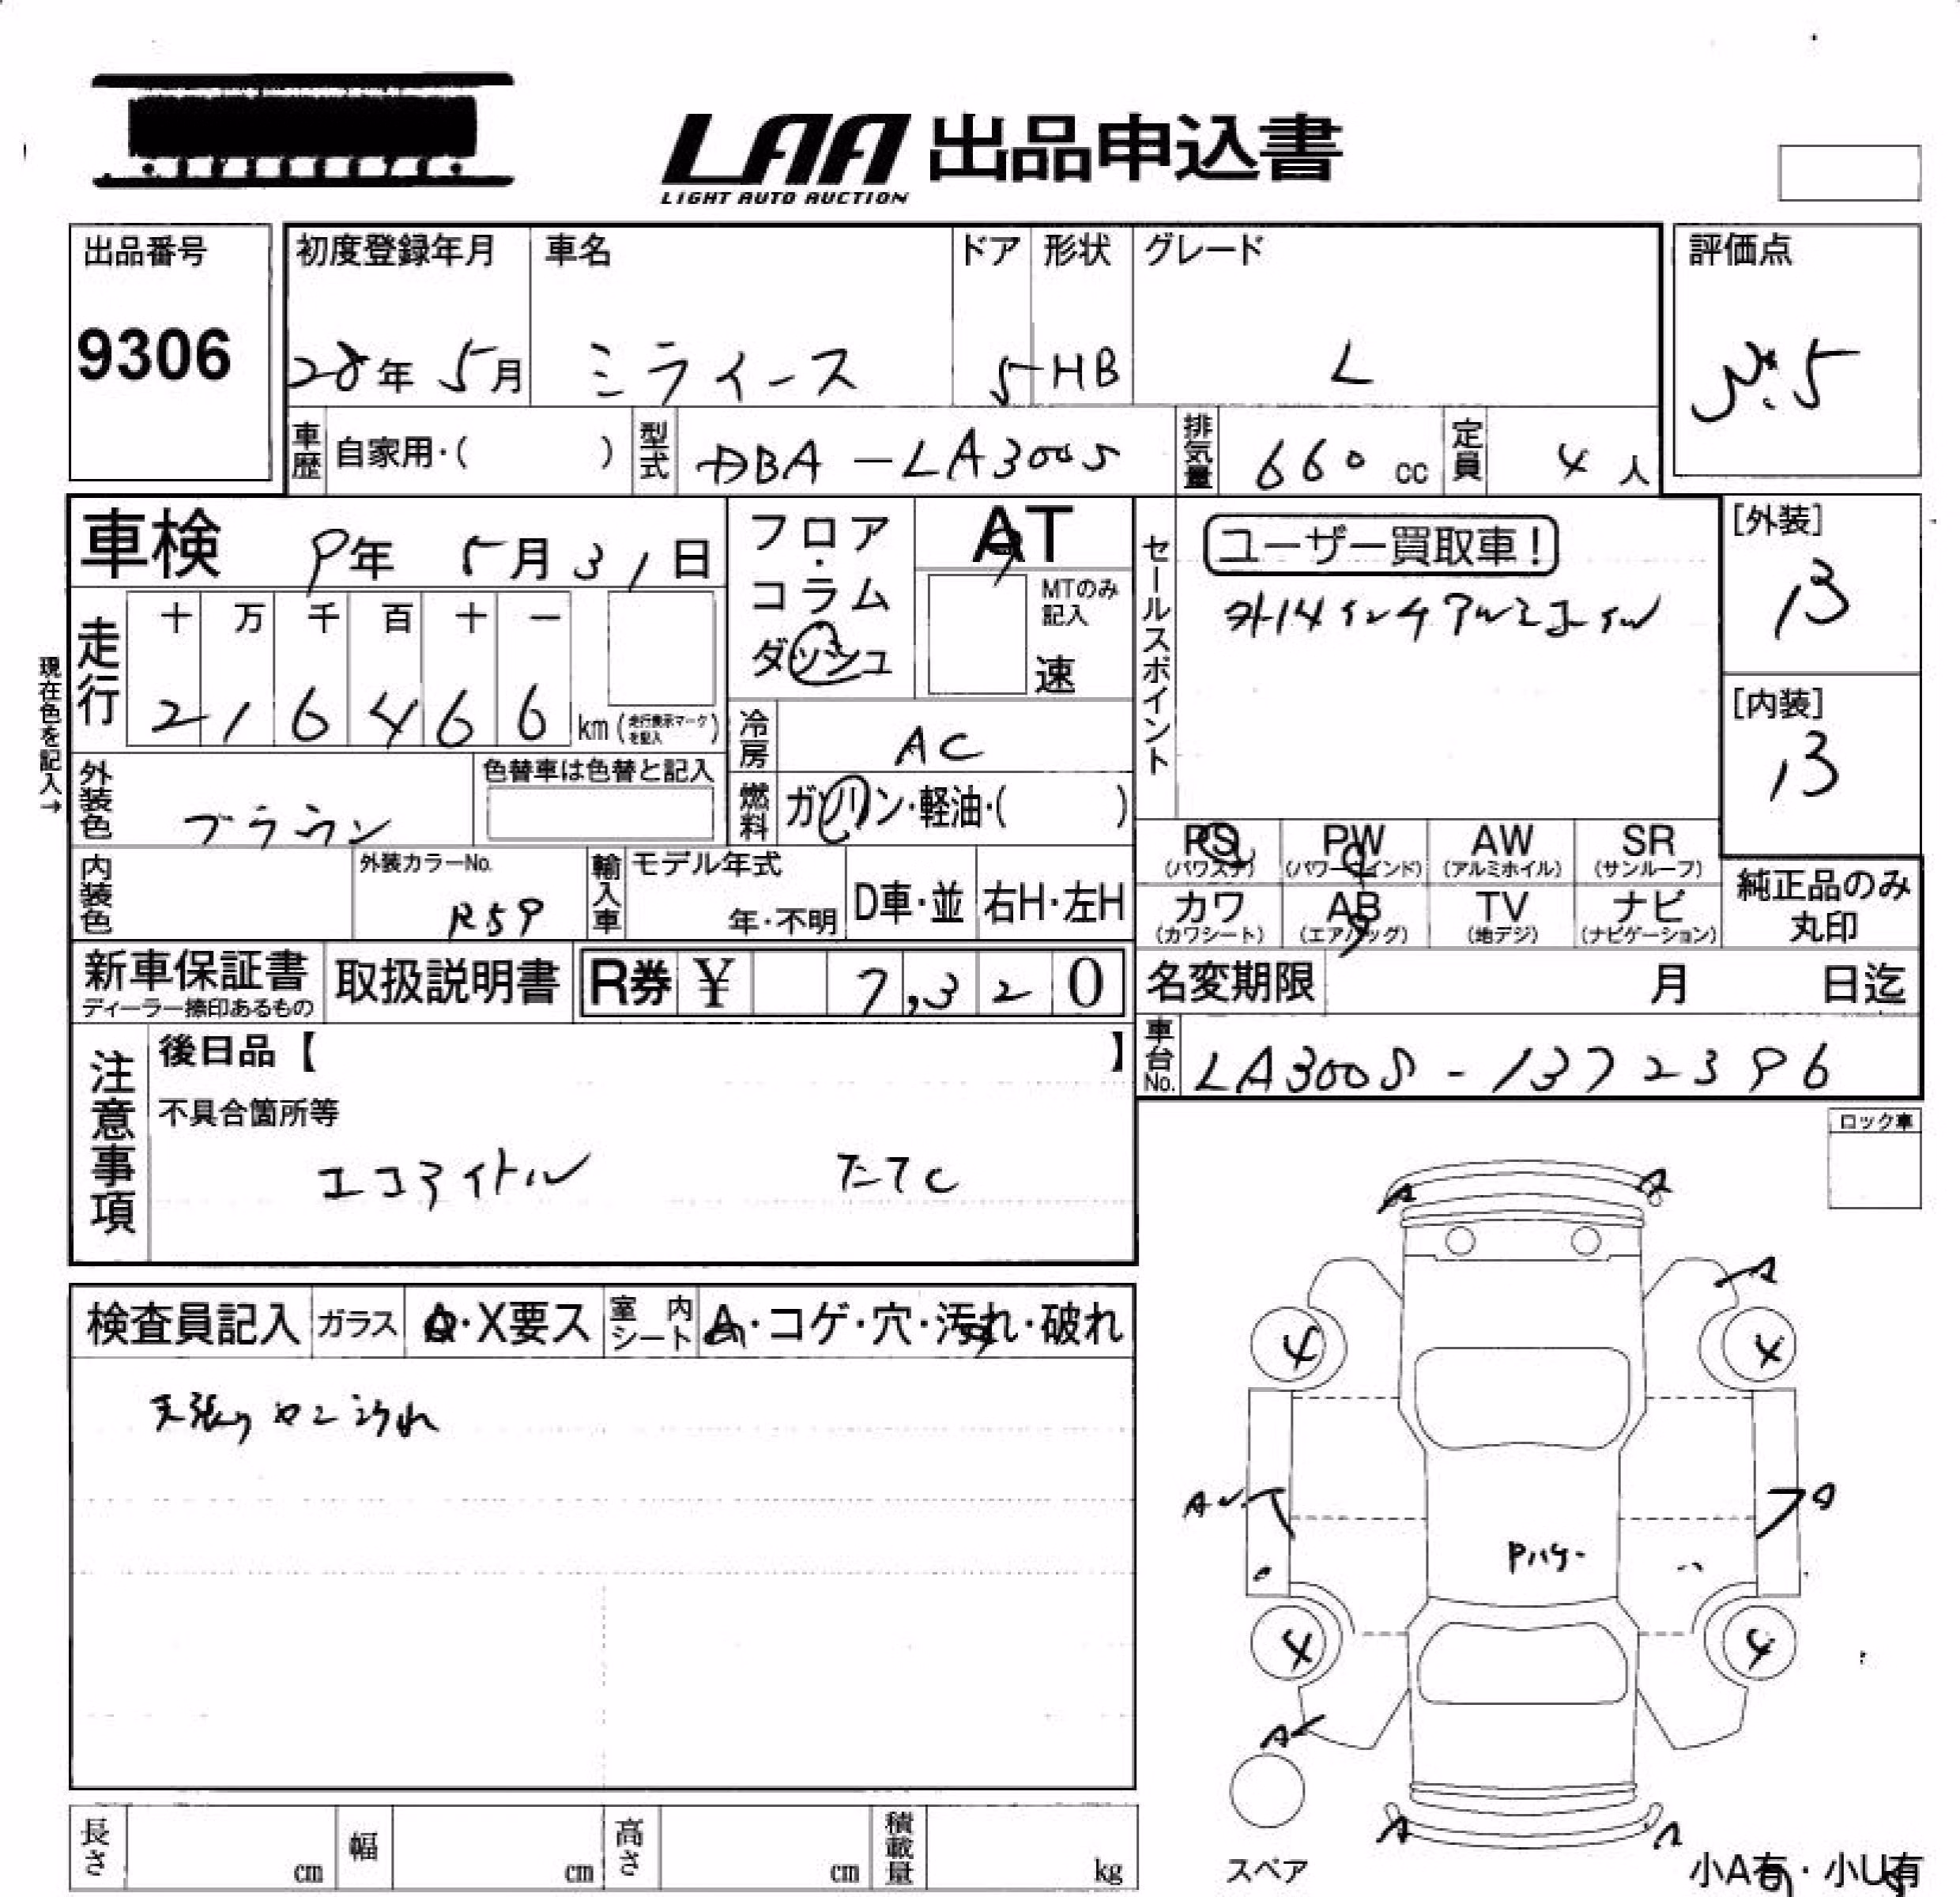 LAA 出品申込書
LIGHT AUTO AUCTION
出品番号
9306
初度登録年月
28年 5月
車名
ミライース
ドア
5
形状
HB
グレード
L
評価点
3.5
車歴 自家用・( )
型式 DBA-LA300S
排気量 660 cc
定員 4 人
車検 9年 5月31日
フロア・コラム
ダッシュ
AT
MTのみ記入
速
走行
十 万 千 百 十 一
2 1 6 4 6 6 km (走行表示マークを記入)
現在色を記入→
外装色 ブラウン
色替車は色替と記入
冷房 AC
燃料 ガソリン・軽油・( )
内装色
外装カラーNo.
R59
輸入車
モデル年式
年・不明
D車・並
右H・左H
セールスポイント
ユーザー買取車!
[外装]
13
[内装]
13
PS
(パワステ)
PW
(パワーウインド)
AW
(アルミホイル)
SR
(サンルーフ)
カワ
(カワシート)
AB
(エアバッグ)
TV
(地デジ)
ナビ
(ナビゲーション)
純正品のみ
丸印
新車保証書
ディーラー捺印あるもの
取扱説明書
R券 ¥ 7,320
名変期限 月 日迄
車台No. LA300S-1372396
注意事項
後日品【 】
不具合箇所等
エコアイドル
ロック車
検査員記入
ガラス
A・X要ス
室内シート
A・コゲ・穴・汚れ・破れ
天張り
A A
A
4 4
A A
4 4
A
A A
長さ cm
幅 cm
高さ cm
積載量 kg
スペア
小A有・小U有